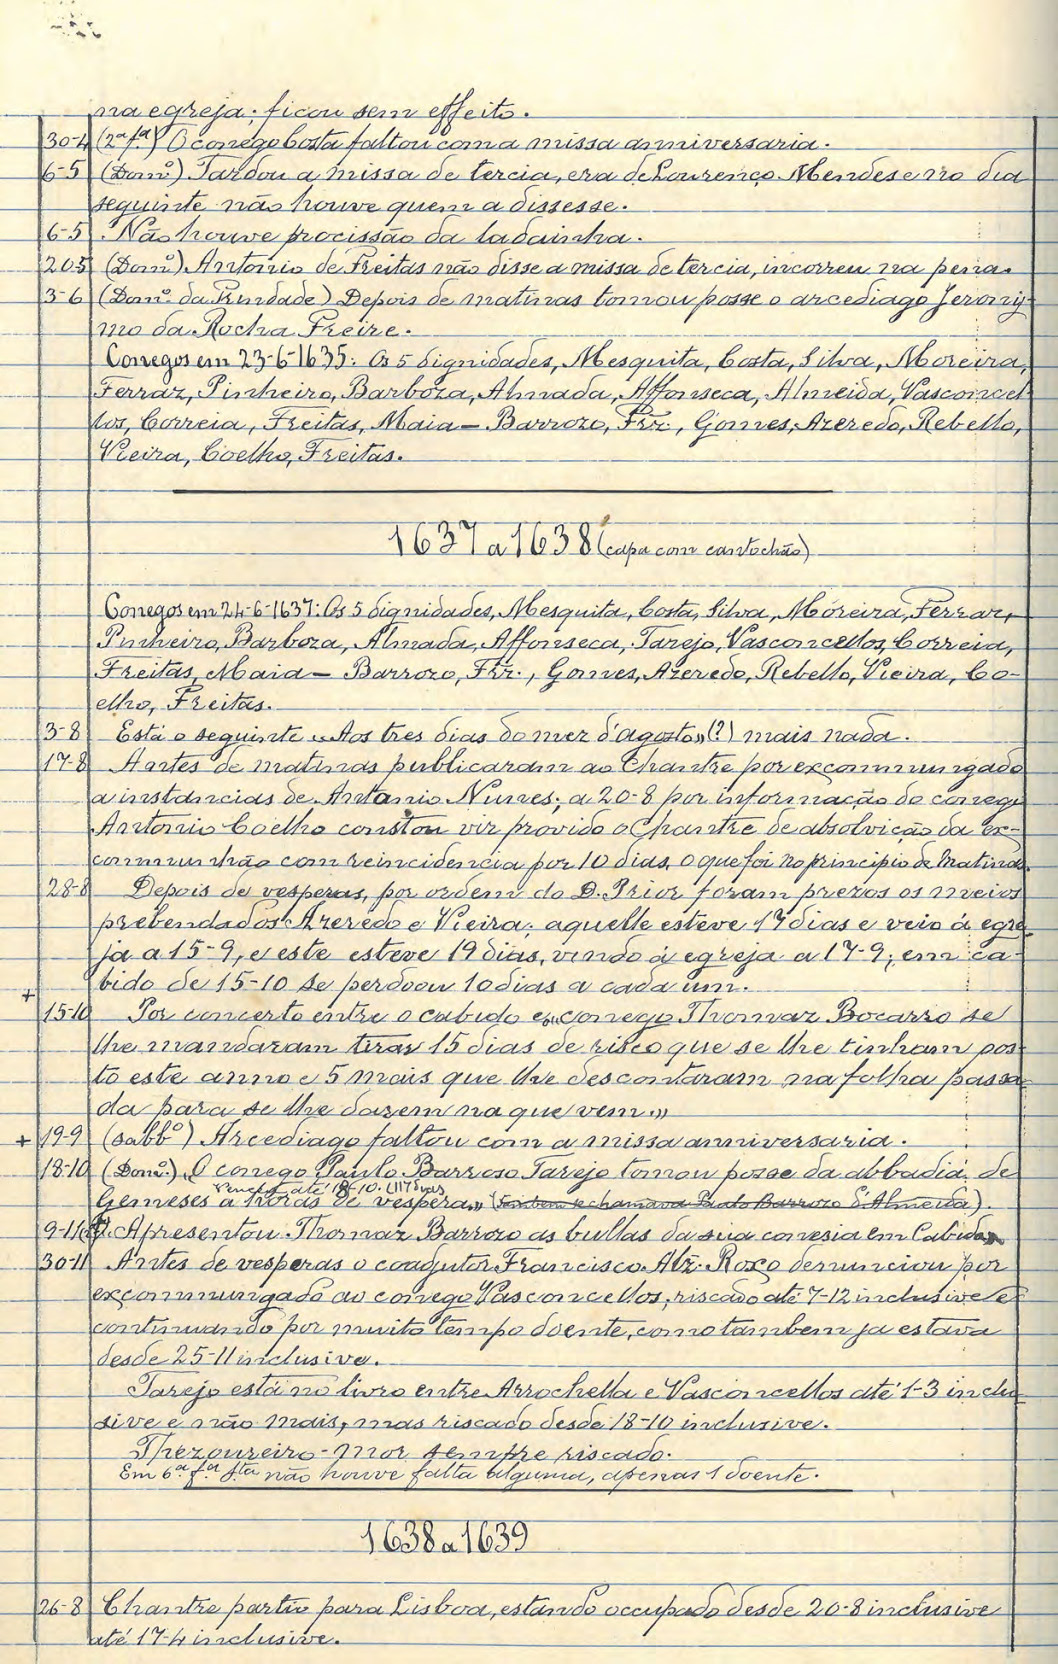 na egreja; ficou sem effeito.
30-4 (2ª fª) O conego Costa faltou com a missa anniversaria.
6-5 (Domº) Tardou a missa de tercia, era de Lourenço Mendes e no dia
seguinte não houve quem a dissesse.
6-5 Não houve procissão da ladainha.
20-5 (Domº) Antonio de Freitas não disse a missa de tercia, incorreu na pena.
3-6 (Domº da Trindade) Depois de matinas tomou posse o arcediago Jerony-
mo da Rocha Freire.
Conegos em 23-6-1635: Os 5 dignidades, Mesquita, Costa, Silva, Moreira,
Ferraz, Pinheiro, Barboza, Almada, Affonseca, Almeida, Vasconcel-
los, Correia, Freitas, Maia — Barrozo, Frz., Gomes, Azeredo, Rebello,
Vieira, Coelho, Freitas.
1637 a 1638 (capa com cantochão)
Conegos em 24-6-1637: Os 5 dignidades, Mesquita, Costa, Silva, Moreira, Ferraz,
Pinheiro, Barboza, Almada, Affonseca, Tarejo, Vasconcellos, Correia,
Freitas, Maia — Barrozo, Frz., Gomes, Azeredo, Rebello, Vieira, Co-
elho, Freitas.
3-8 Está o seguinte "Aos tres dias do mez d'agosto" (?) mais nada.
17-8 Antes de matinas publicaram ao Chantre por excommungado
a instancias de Antonio Nunes; a 20-8 por informação do conego
Antonio Coelho constou vir provido o Chantre de absolvição da ex-
communhão com reincidencia por 10 dias, o que foi no principio de Matinas.
28-8 Depois de vesperas, por ordem do D. Prior foram prezos os meios
prebendados Azeredo e Vieira; aquelle esteve 17 dias e veio á egre-
ja a 15-9, e este esteve 19 dias, vindo á egreja a 17-9; em ca-
bido de 15-10 se perdoou 10 dias a cada um.
+ 15-10 Por concerto entre o cabido e o "conego Thomaz Bocarro se
lhe mandaram tirar 15 dias de risco que se lhe tinham pos-
to este anno e 5 mais que lhe descontaram na folha passa-
da para se lhe darem na que vem."
+ 19-9 (sabbº) Arcediago faltou com a missa anniversaria.
18-10 (Domº) O conego Paulo Barroso Tarejo tomou posse da abbadia de
Venceu até 18-10. (117 dias
Gemeses a horas de vespera," (tambem se chamava Paulo Barrozo d'Almeida).
9-11 Apresentou Thomaz Barrozo as bullas da sua conesia em Cabido
30-11 Antes de vesperas o coadjutor Francisco Alz. Roxo denunciou por
excommungado ao conego Vasconcellos; riscado até 7-12 inclusive e
continuando por muito tempo doente, como tambem ja estava
desde 25-11 inclusive.
Tarejo está no livro entre Arrochella e Vasconcellos até 1-3 inclu-
sive e não mais, mas riscado desde 18-10 inclusive.
Thezoureiro-mor sempre riscado.
Em 6ª fª stª não houve falta alguma, apenas 1 doente.
1638 a 1639
26-8 Chantre partiu para Lisboa, estando occupado desde 20-8 inclusive
até 17-4 inclusive.